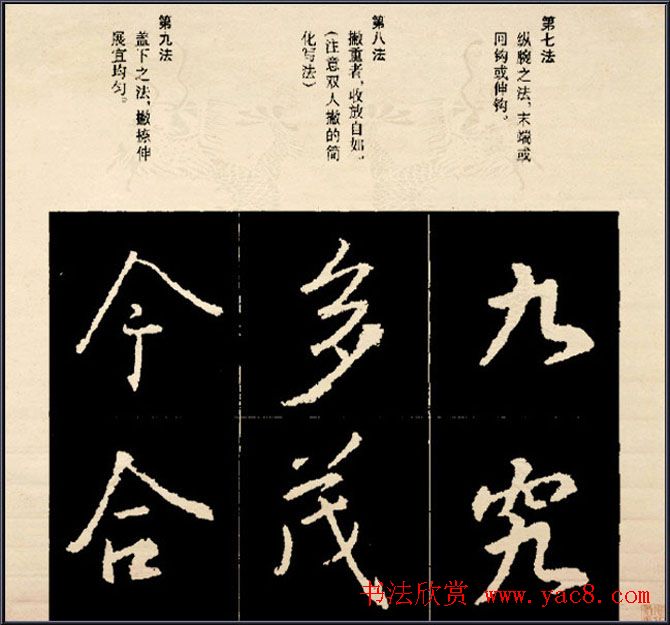 第七法
纵腕之法，末端或
回钩或伸钩。
第八法
撇重者，收放自如，
（注意双人撇的简
化写法）
第九法
盖下之法，撇捺伸
展宜均匀。
九究
多茂
今合
书法欣赏 www.yac8.com